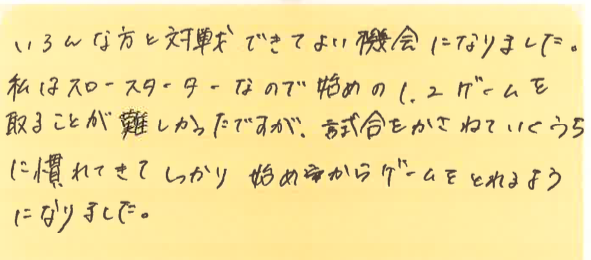 いろんな方と対戦できてよい機会になりました。
私はスロースターターなので始めの1、2ゲームを
取ることが難しかったですが、試合をかさねていくうち
に慣れてきてしっかり始めからゲームをとれるよう
になりました。